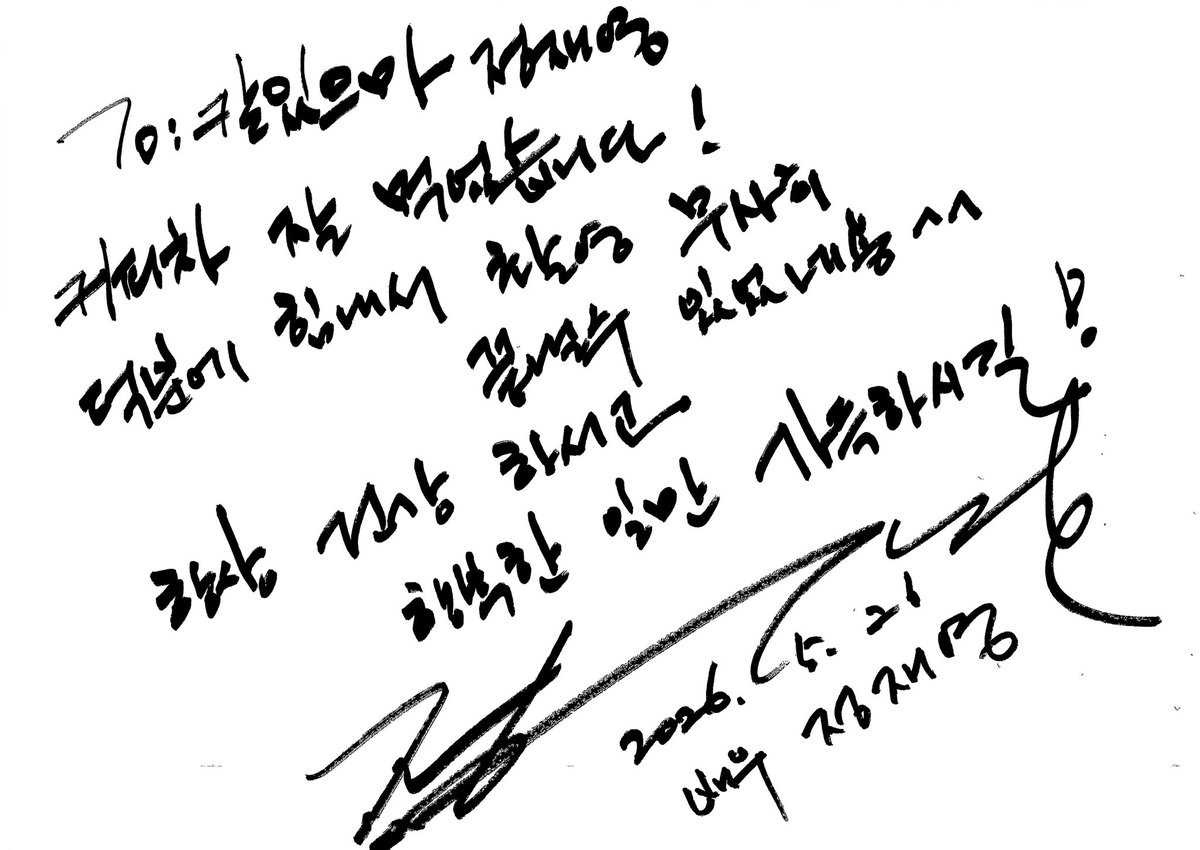 To: 칼있으마 정재영
커피차 잘 먹었습니다!
덕분에 힘내서 촬영 무사히
끝낼수 있겠네용^^
항상 건강 하시고
행복한 일만 가득하시길!
2026. 5. 21
배우 정재영